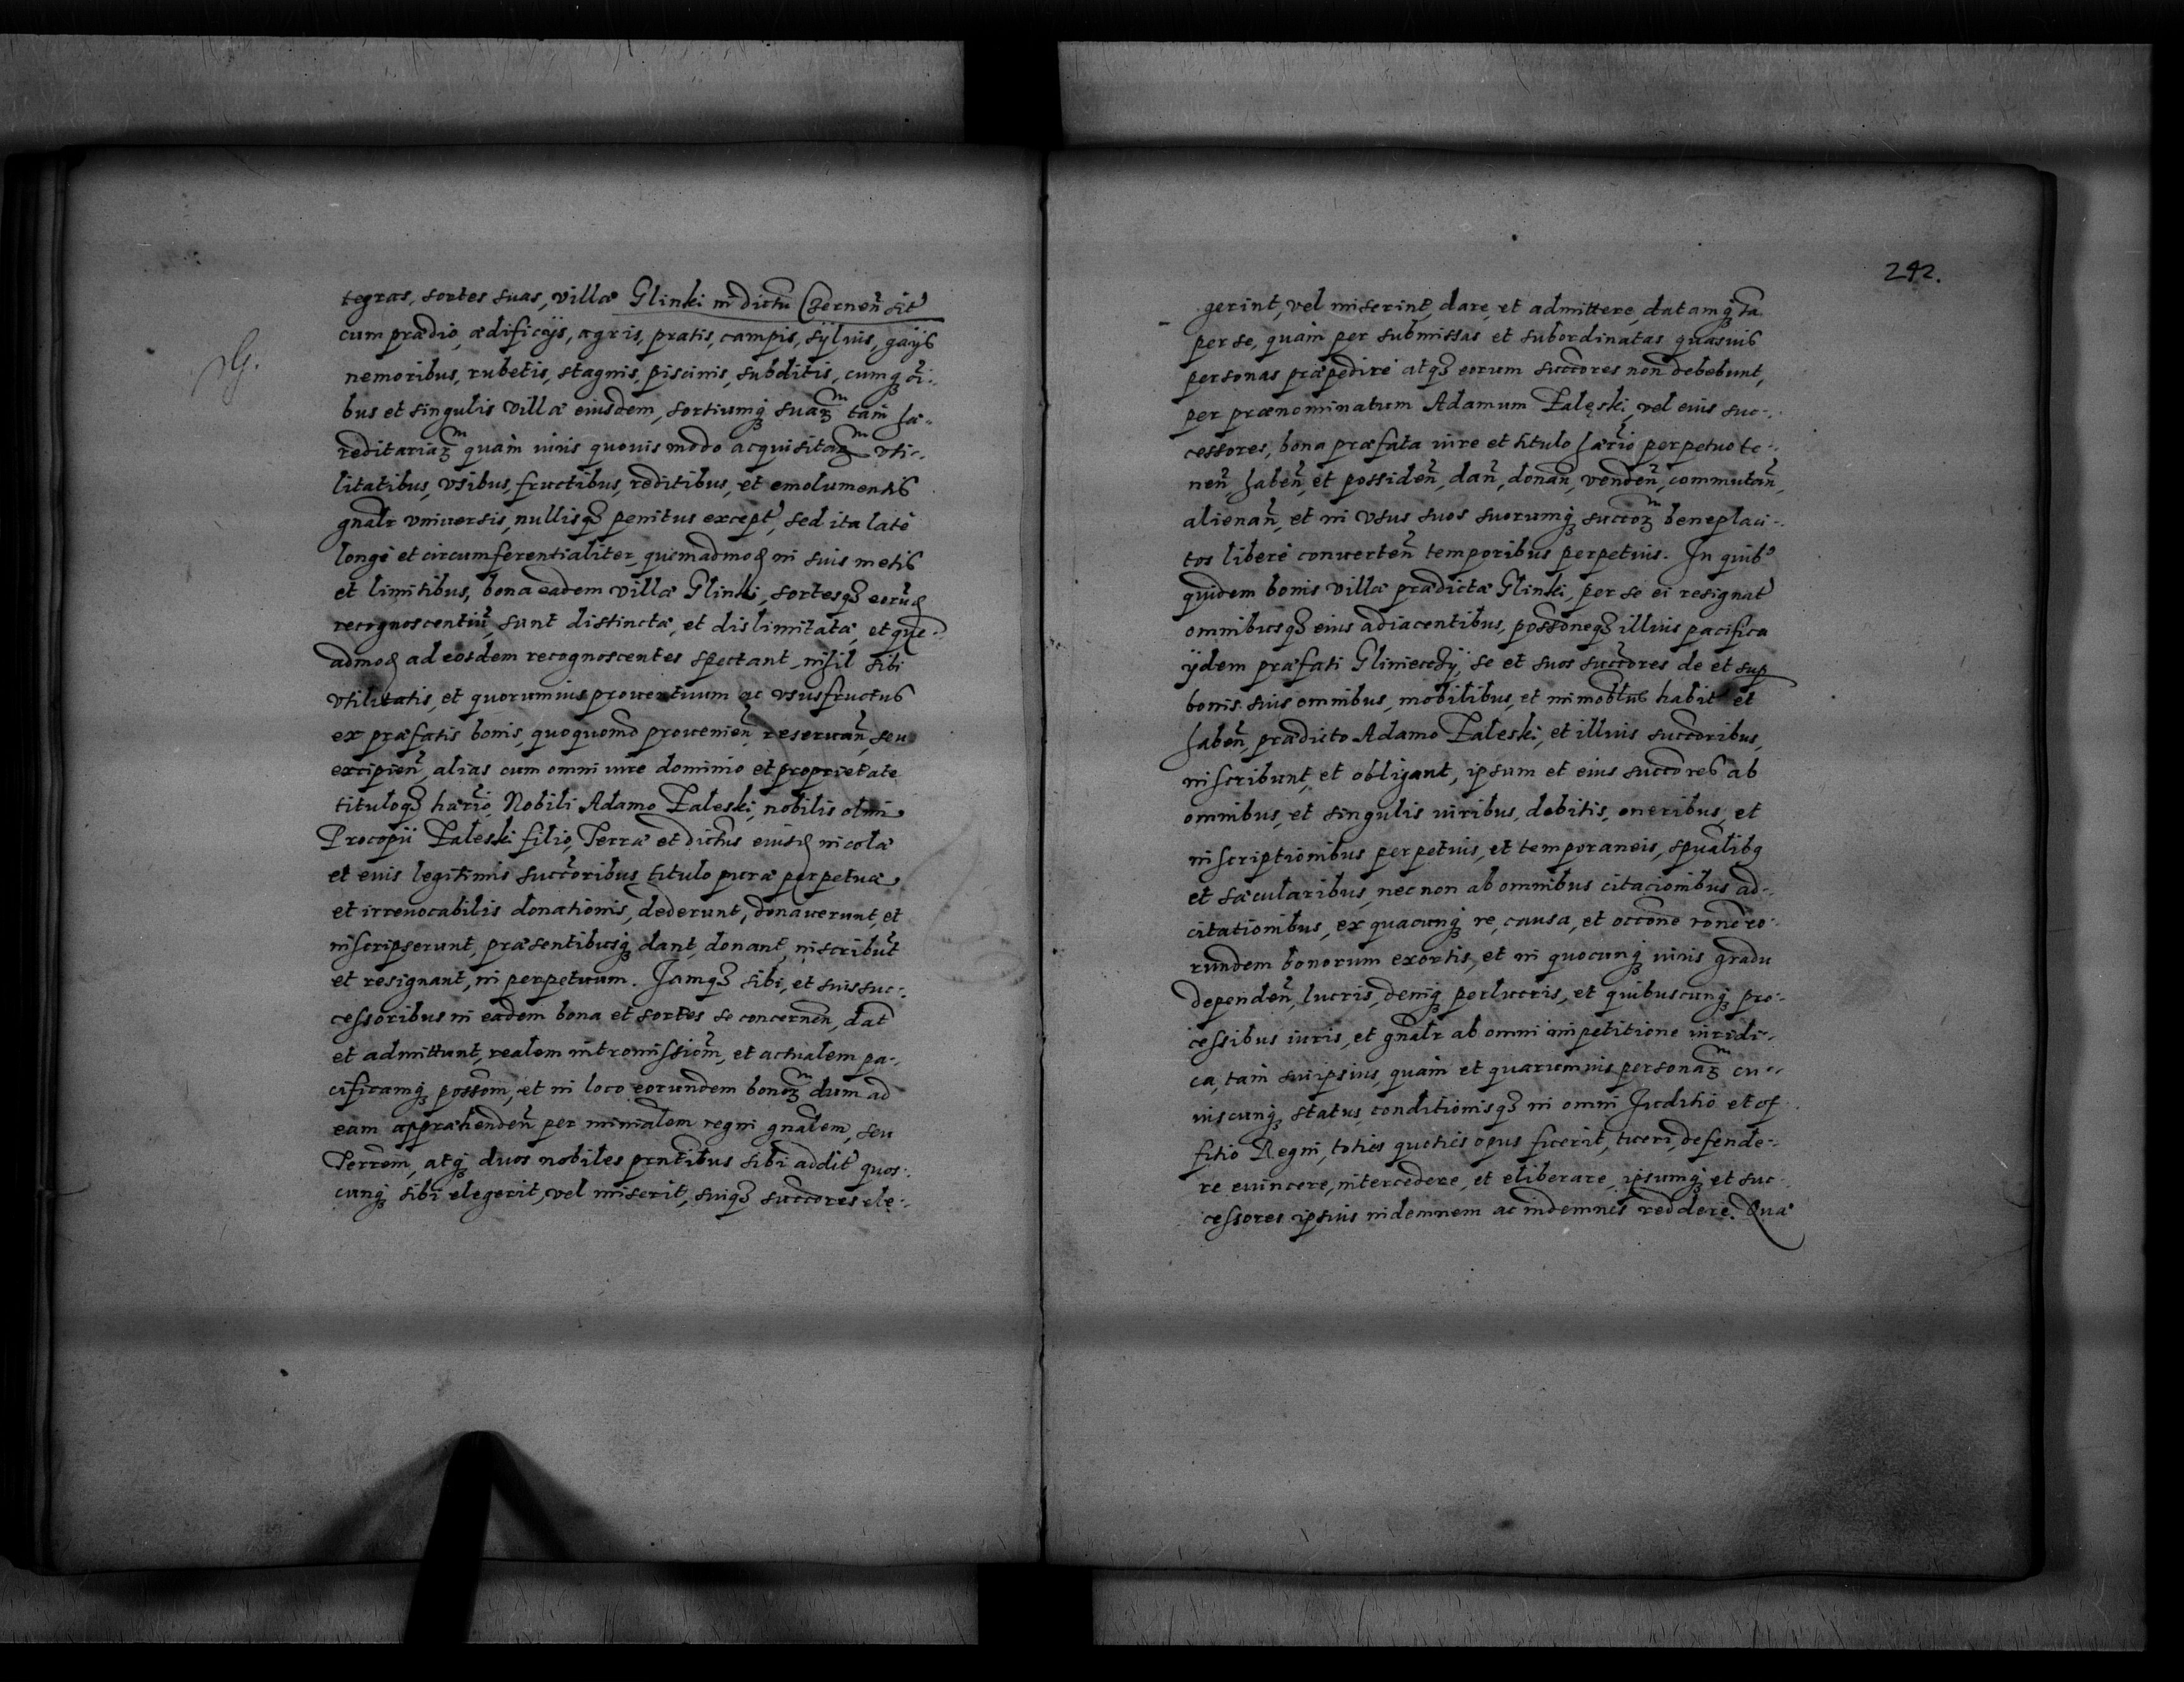 tegras, sortes suas, villæ Glinki in dictu Czernen̄ sit
G.
cum prædio, ædificijs, agris, pratis, campis, sylvis, gays
nemoribus, rubetis, stagnis, piscinis, subditis, cumq3 oi-
bus et singulis villæ eiusdem, sortiumq3 suaꝝ tam hæ-
reditariaꝝ quam iuris quovis modo acquisitaꝝ uti-
litatibus, usibus, fructibus, reditibus, et emolumentis
gnalr universis, nullisq3 penitus except, sed ita late
longe et circumferentialiter, quemadmod in suis metis
et limitibus, bona eadem villæ Glinki, sortesq3 eorud
recognoscentiu, sunt distinctæ, et dislimitatæ, et que-
admod ad eosdem recognoscentes spectant, nihil sibi
utilitatis, et quorumvis proventuum ac ususfructus
ex præfatis bonis, quoquomo provenien̄, reservan̄, seu
excipien̄, alias cum omni iure dominio et proprietate
tituloq3 hærio, Nobili Adamo Zaleski, nobilis olim
Procopii Zaleski filio, Terræ et dictus eiusd incolæ
et eius legitimis succoribus titulo puræ perpetuæ
et irrevocabilis donationis, dederunt, donaverunt, et
inscripserunt, præsentibusq3 dant, donant, inscribut
et resignant, in perpetuum. Jamq3 sibi, et suis suc-
cessoribus in eadem bona et sortes se concernen̄, dat
et admittunt, realem intromissiom, et actualem pa-
cificamq3 possom, et in loco eorundem bonoꝝ dum ad
eam apprehenden̄ per minialem regni gnalem, seu
Terrem, atq3 duos nobiles prntibus sibi addit quos-
cunq3 sibi elegerit, vel miserit, suiq3 succores ele-
242.
gerint, vel miserint, dare, et admittere, datamq3 ta
per se, quam per submissas et subordinatas quasvis
personas præpedire atq3 eorum succores non debebunt,
per prænominatum Adamum Zaleski, vel eius suc-
cessores, bona præfata iure et titulo hærio perpetuo te-
nen̄, haben̄, et possiden̄, dan̄, donan̄, venden̄, commutan̄,
alienan̄, et in usus suos suorumq3 succoꝝ beneplaci-
tos libere converten̄ temporibus perpetuis. In quib9
quidem bonis villæ prædictæ Glinki, per se ei resignat
omnibusq3 eius adiacentibus, possoneq3 illius pacifica
ijdem præfati Gliniecchy, se et suos succores de et sup
bonis suis omnibus, mobilibus, et immoblus habit et
haben̄, prædicto Adamo Zaleski, et illius succoribus,
inscribunt, et obligant, ipsum et eius succores ab
omnibus, et singulis iuribus, debitis, oneribus, et
inscriptionibus perpetuis, et temporaneis, spualibq
et sæcularibus, nec non ab omnibus citacionibus ad-
citationibus, ex quacunq3 re, causa, et occone rone eo-
rundem bonorum exortis, et in quocunq3 iuris gradu
dependen̄, lucris, deniq3 perlucris, et quibuscunq3 pro-
cessibus iuris, et gnalr ab omni impetitione iuridi-
ca, tam sui ipsius, quam et quarumvis personaꝝ cu-
iuscunq3 status, conditionisq3 in omni Juditio et of
fitio Regni, toties quoties opus fuerit, tueri, defende-
re evincere, intercedere, et eliberare, ipsumq3 et suc-
cessores ipsius indemnem ac indemnes reddere. Quæ